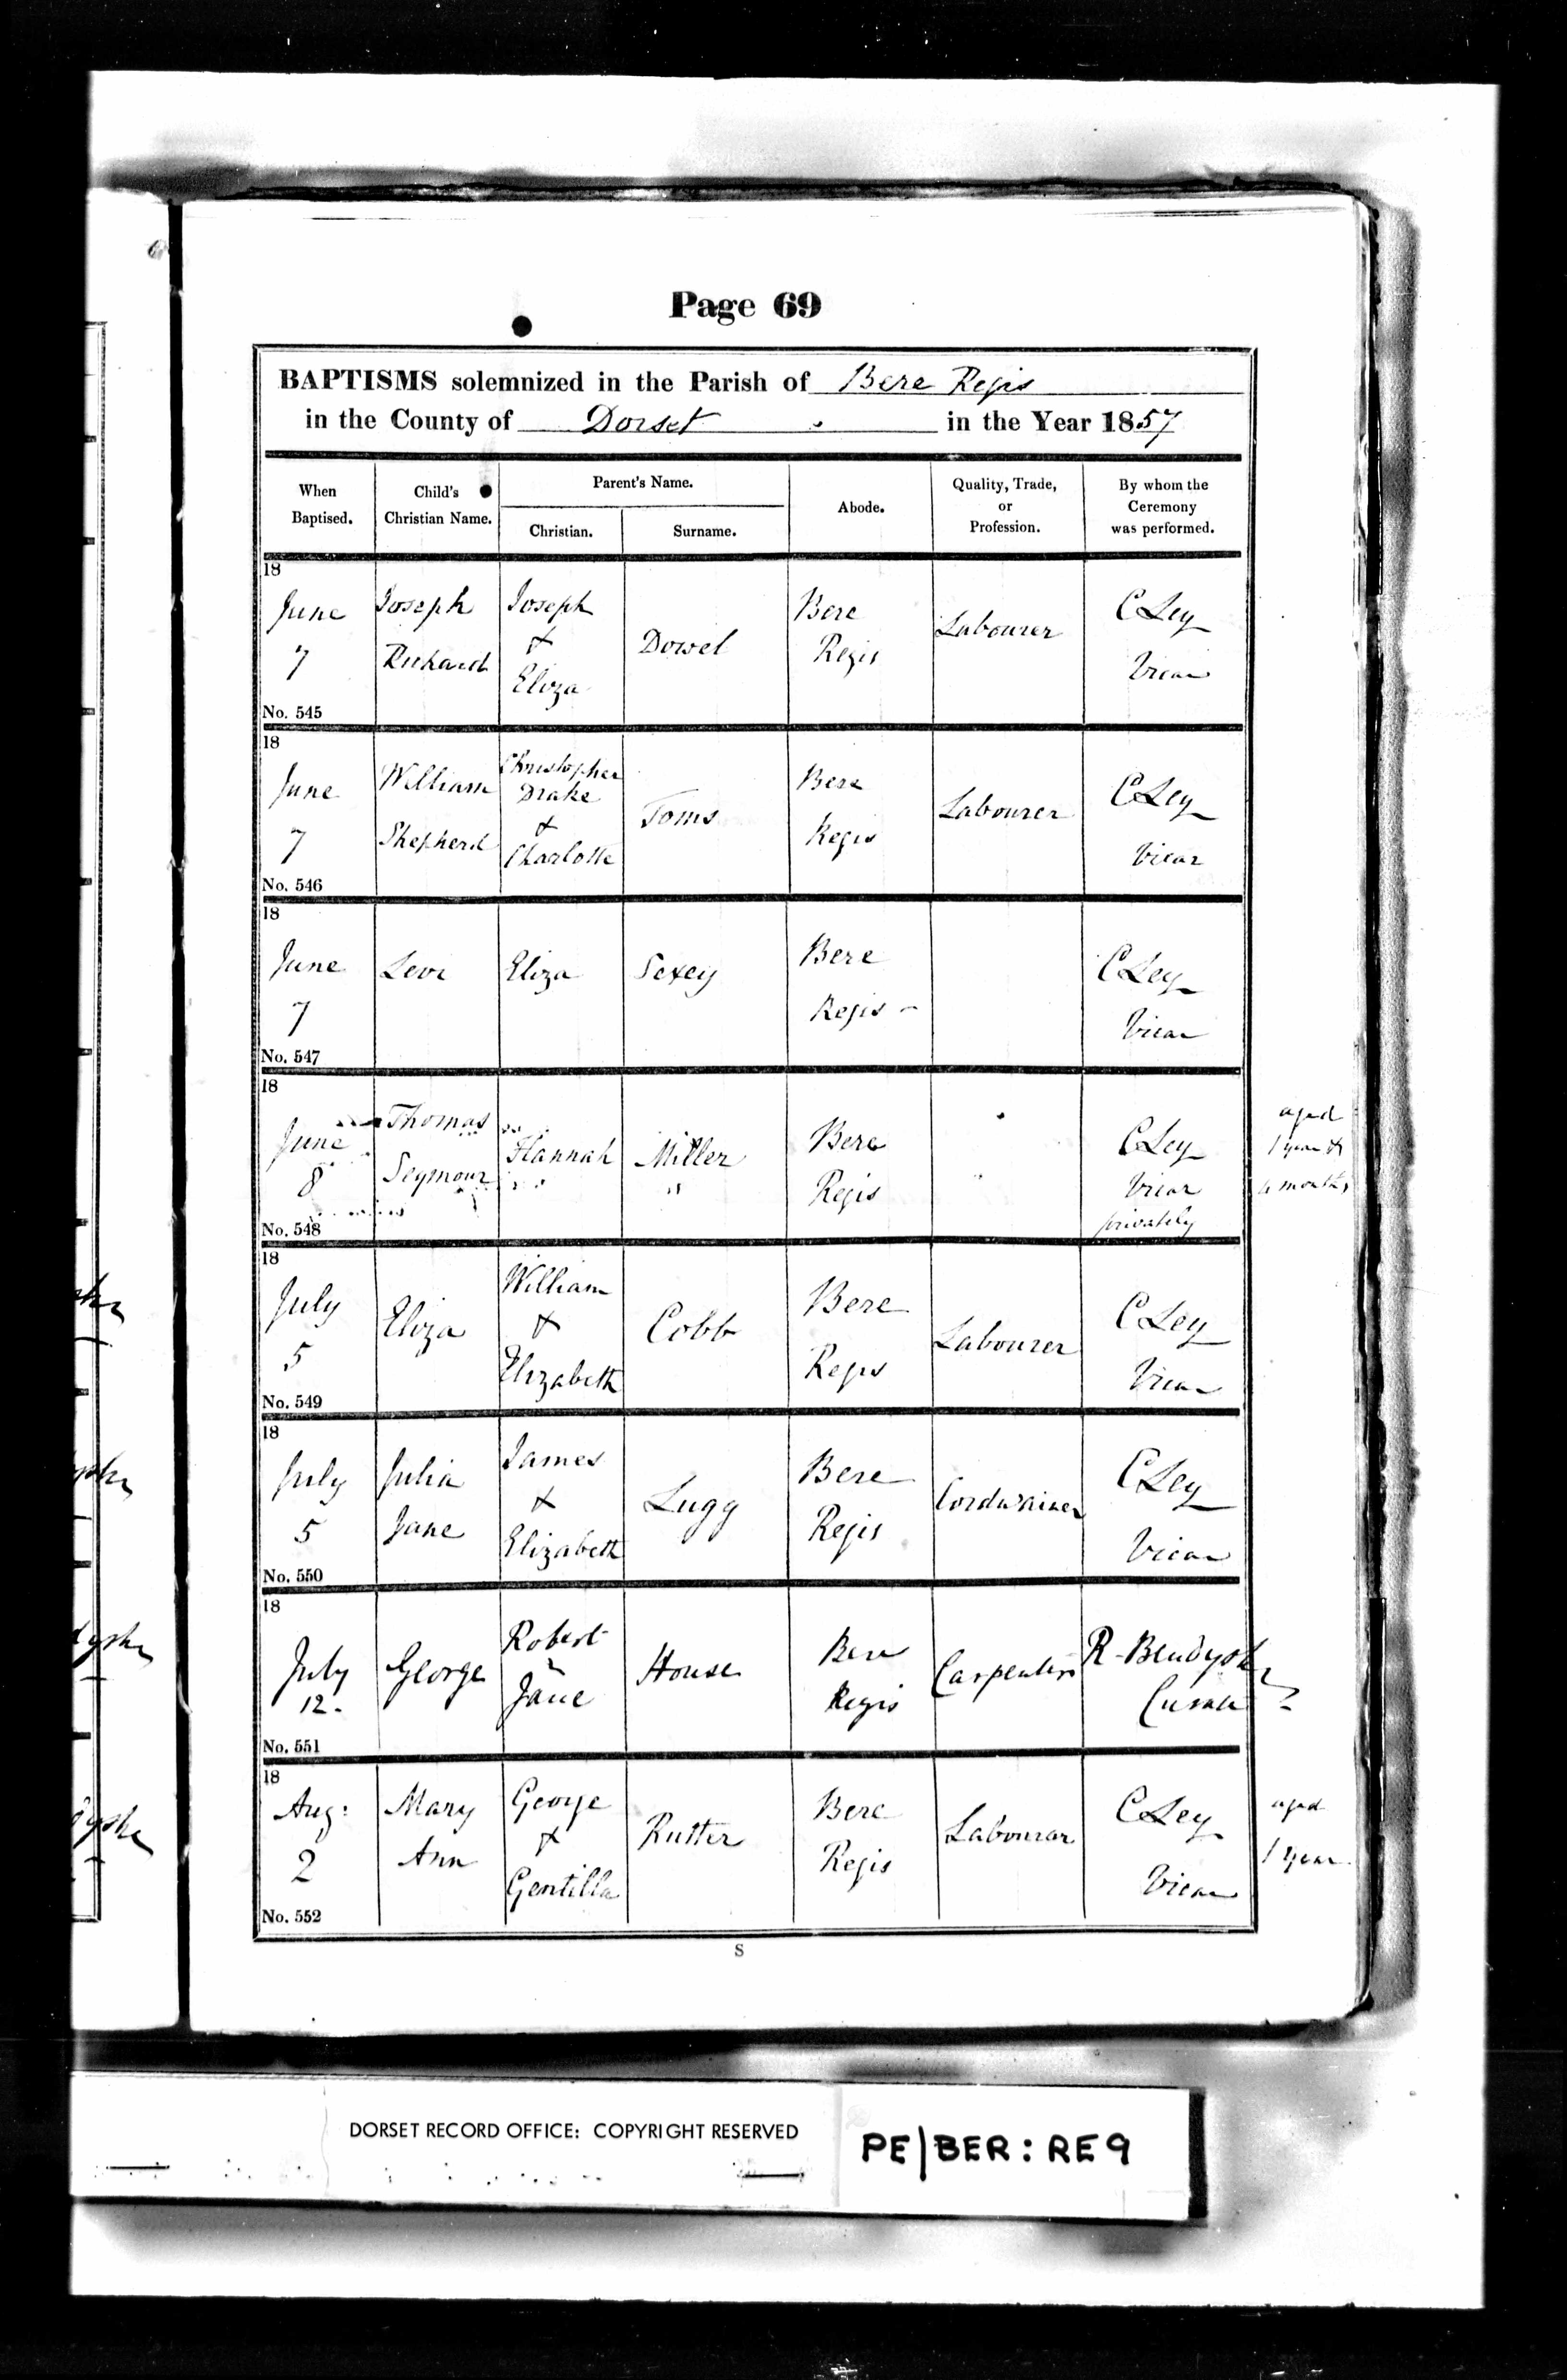 Page 69
BAPTISMS solemnized in the Parish of Bere Regis
in the County of Dorset in the Year 1857
When Baptised.
Child's Christian Name.
Parent's Name.
Christian.
Surname.
Abode.
Quality, Trade, or Profession.
By whom the Ceremony was performed.
18
June 7
Joseph Richard
Joseph & Eliza
Dowel
Bere Regis
Labourer
C Ley Vicar
No. 545
18
June 7
William Shepherd
Christopher Drake & Charlotte
Toms
Bere Regis
Labourer
C Ley Vicar
No. 546
18
June 7
Levi
Eliza
Sexey
Bere Regis
C Ley Vicar
No. 547
18
June 8
Thomas Seymour
Hannah
Miller
Bere Regis
C Ley Vicar privately
aged 1 year & months
No. 548
18
July 5
Eliza
William & Elizabeth
Cobb
Bere Regis
Labourer
C Ley Vicar
No. 549
18
July 5
Julia Jane
James & Elizabeth
Lugg
Bere Regis
Cordwainer
C Ley Vicar
No. 550
18
July 12.
George
Robert & Jane
House
Bere Regis
Carpenter
R. Bendyshe Curate
No. 551
18
Aug: 2
Mary Ann
George & Gentilla
Rutter
Bere Regis
Labourer
C Ley Vicar
aged 1 year
No. 552
S
DORSET RECORD OFFICE: COPYRIGHT RESERVED
PE/BER:RE9